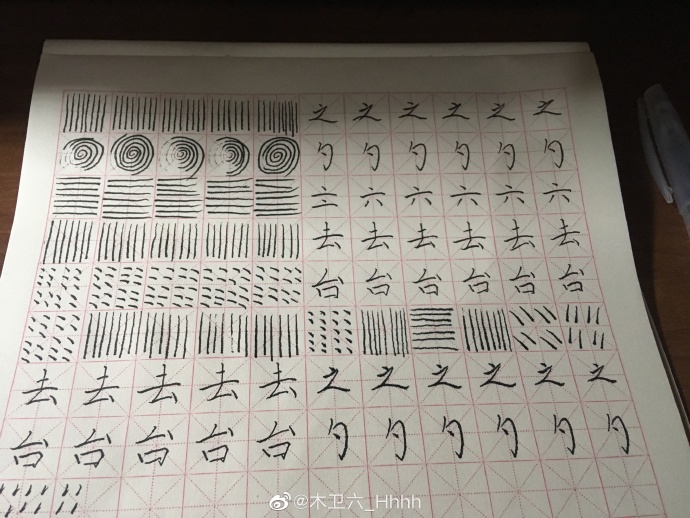 之之之之之之
勺勺勺勺勺勺
六六六六六
去去去去去去
台台台台台台
去去去去去之之之之之之
台台台台台勺勺勺勺勺勺
@木卫六_Hhhh